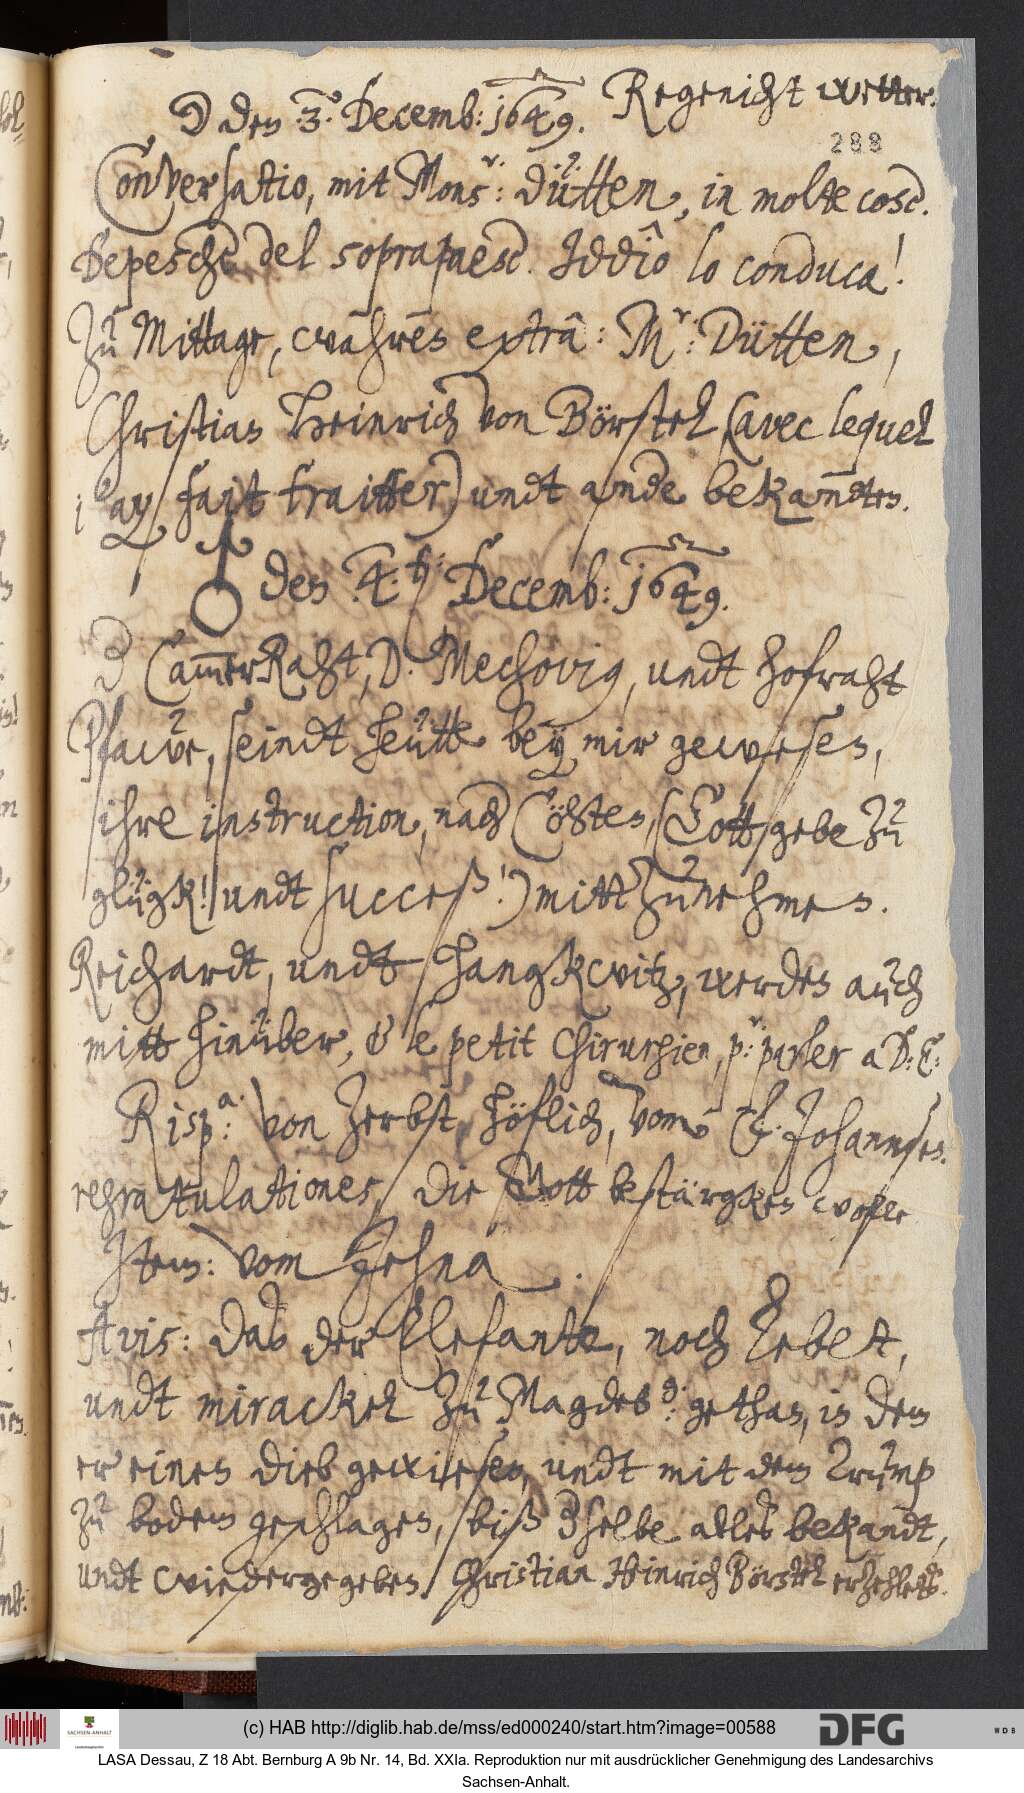 ☽ den 3. Decemb: 1649. Regenicht wetter.
288
Conversatio, mit Mons.r: Dütten, in molte cosd.
Depesche del soprapaesd. Iddio lo conduca!
Zu Mittage, wahren extra: M.r: Dütten,
Christian Heinrich von Börstel (avec lequel
i'ay fait traitter) undt ande bekandten.
♂ den 4. Decemb: 1649.
CammerRaht, D. Mechovig, undt hofraht
Pfawe, seindt heutte bey mir gewesen,
ihre instruction, nach Cöhten, (Gott gebe zu
glügk! undt succeß!) mitt zu nehmen.
Reichardt, undt Hangkwitz, werden auch
mitt hinüber, & le petit Chirurgien, p.r: parler a D. E.
Risp.a: von Zerbst, höflich, vom F. Johannsen.
regratulationes, die Gott bestärgken wolle
Item: vom Jehna.
Avis: das der Elefante, noch lebet,
undt mirackel zu Magdeb.g: gethan, in dem
er einen dieb gewiesen, undt mit dem Trump
zu bodem geschlagen, biß dselbe alles bekandt,
undt wiedergegeben. Christian Heinrich Börstel erzehlets.
(c) HAB http://diglib.hab.de/mss/ed000240/start.htm?image=00588
SACHSEN-ANHALT
DFG
WDB
LASA Dessau, Z 18 Abt. Bernburg A 9b Nr. 14, Bd. XXIa. Reproduktion nur mit ausdrücklicher Genehmigung des Landesarchivs
Sachsen-Anhalt.